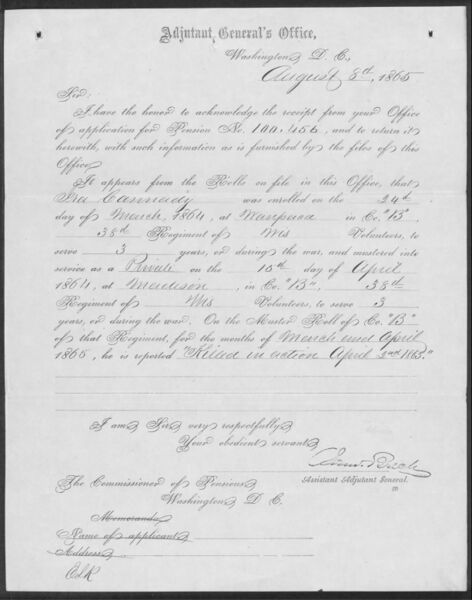 Adjutant General's Office,
Washington, D. C.,
August 8th, 1865
Sir:
I have the honor to acknowledge the receipt from your Office
of application for Pension No. 100,456, and to return it
herewith, with such information as is furnished by the files of this
Office.
It appears from the Rolls on file in this Office, that
Ira Cannady was enrolled on the 24th
day of March, 1864, at Waupaca in Co. "B",
38th Regiment of Wis Volunteers, to
serve 3 years, or during the war, and mustered into
service as a Private on the 10th day of April
1864, at Madison, in Co. "B", 38th
Regiment of Wis Volunteers, to serve 3
years, or during the war. On the Muster Roll of Co. "B"
of that Regiment, for the months of March and April
1865, he is reported "Killed in action April 2nd 1865."
I am, Sir, very respectfully,
Your obedient servant,
Saml. Breck
Assistant Adjutant General.
The Commissioner of Pensions,
Washington, D. C.
Memoranda
Name of applicant,
Address,